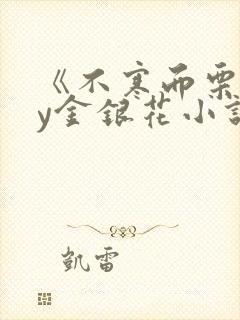 《不寒而栗
y金银花小说
凯雷